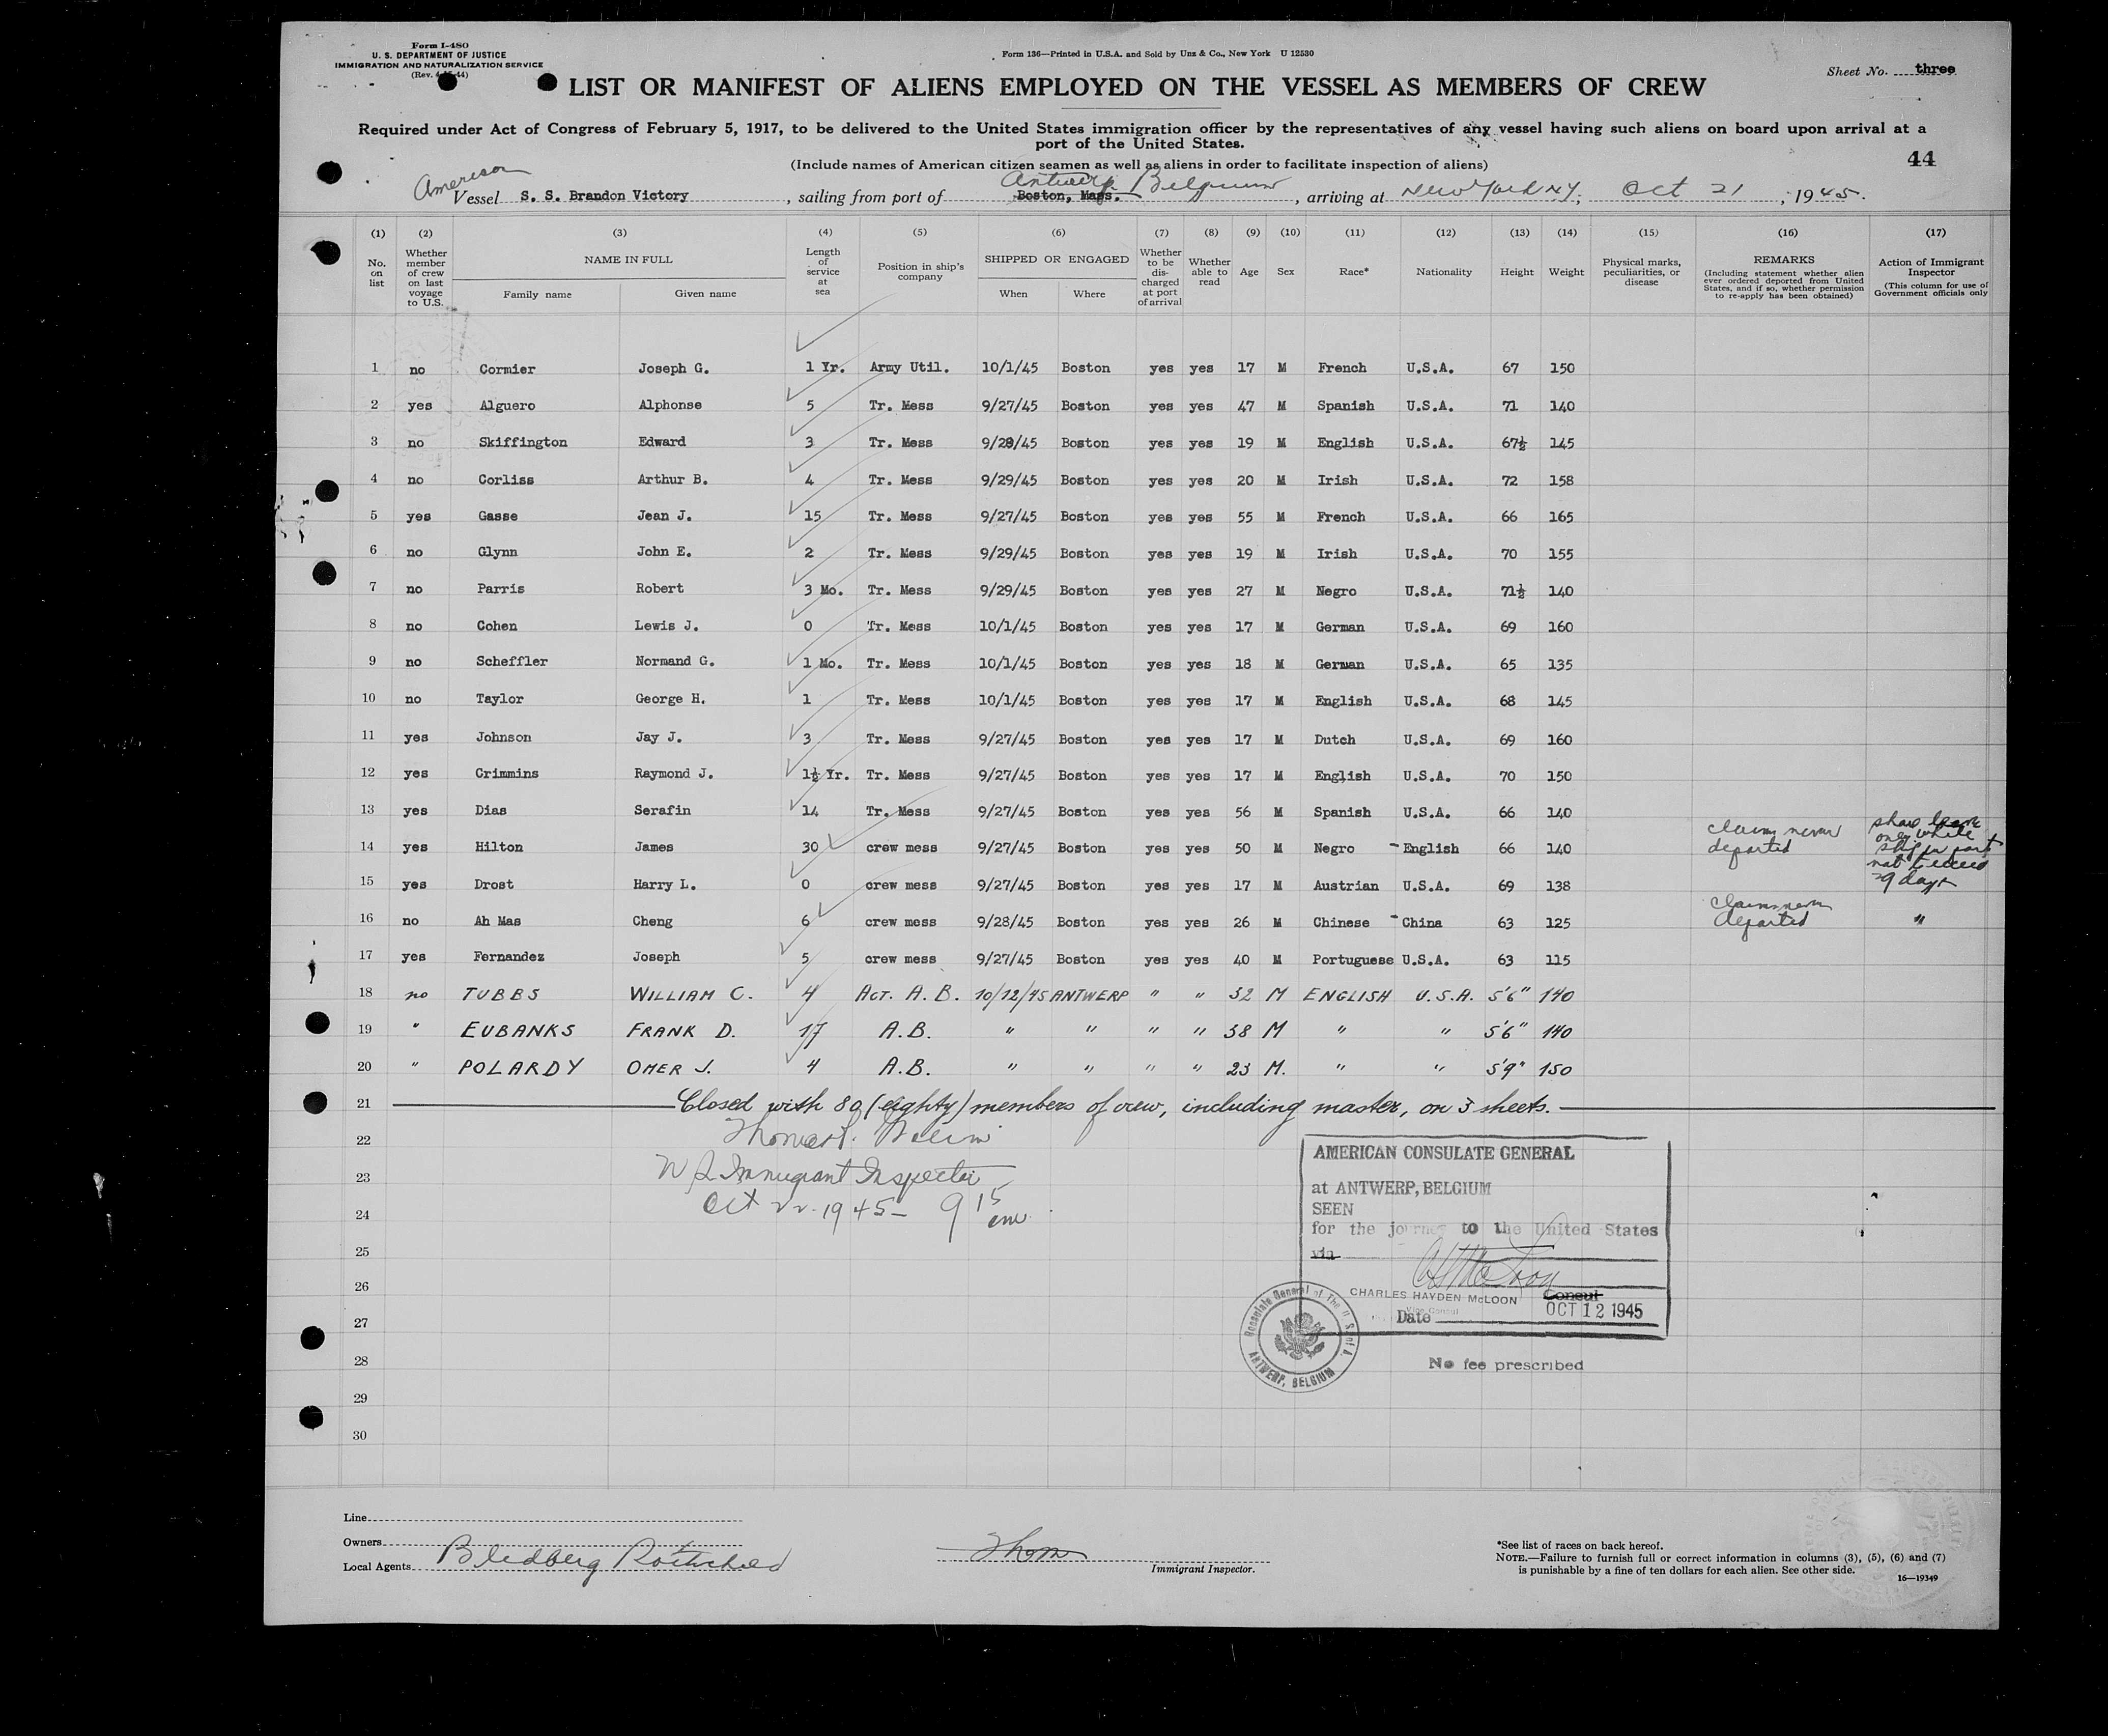 Form I-480
U. S. DEPARTMENT OF JUSTICE
IMMIGRATION AND NATURALIZATION SERVICE
(Rev. 44)
Form 136—Printed in U.S.A. and Sold by Unz & Co., New York U 12530
Sheet No. three
LIST OR MANIFEST OF ALIENS EMPLOYED ON THE VESSEL AS MEMBERS OF CREW
Required under Act of Congress of February 5, 1917, to be delivered to the United States immigration officer by the representatives of any vessel having such aliens on board upon arrival at a
port of the United States.
(Include names of American citizen seamen as well as aliens in order to facilitate inspection of aliens)
44
American
Antwerp Belgium
Vessel S. S. Brandon Victory, sailing from port of Boston, Mass., arriving at New York NY, Oct 21, 1945.
(1) (2) (3) (4) (5) (6) (7) (8) (9) (10) (11) (12) (13) (14) (15) (16) (17)
No. on list
Whether member of crew on last voyage to U.S.
NAME IN FULL
Family name
Given name
Length of service at sea
Position in ship's company
SHIPPED OR ENGAGED
When
Where
Whether to be discharged at port of arrival
Whether able to read
Age
Sex
Race*
Nationality
Height
Weight
Physical marks, peculiarities, or disease
REMARKS
(Including statement whether alien ever ordered deported from United States, and if so, whether permission to re-apply has been obtained)
Action of Immigrant Inspector
(This column for use of Government officials only
1 no Cormier Joseph G. 1 Yr. Army Util. 10/1/45 Boston yes yes 17 M French U.S.A. 67 150
2 yes Alguero Alphonse 5 Tr. Mess 9/27/45 Boston yes yes 47 M Spanish U.S.A. 71 140
3 no Skiffington Edward 3 Tr. Mess 9/28/45 Boston yes yes 19 M English U.S.A. 67½ 145
4 no Corliss Arthur B. 4 Tr. Mess 9/29/45 Boston yes yes 20 M Irish U.S.A. 72 158
5 yes Gasse Jean J. 15 Tr. Mess 9/27/45 Boston yes yes 55 M French U.S.A. 66 165
6 no Glynn John E. 2 Tr. Mess 9/29/45 Boston yes yes 19 M Irish U.S.A. 70 155
7 no Parris Robert 3 Mo. Tr. Mess 9/29/45 Boston yes yes 27 M Negro U.S.A. 71½ 140
8 no Cohen Lewis J. 0 Tr. Mess 10/1/45 Boston yes yes 17 M German U.S.A. 69 160
9 no Scheffler Normand G. 1 Mo. Tr. Mess 10/1/45 Boston yes yes 18 M German U.S.A. 65 135
10 no Taylor George H. 1 Tr. Mess 10/1/45 Boston yes yes 17 M English U.S.A. 68 145
11 yes Johnson Jay J. 3 Tr. Mess 9/27/45 Boston yes yes 17 M Dutch U.S.A. 69 160
12 yes Crimmins Raymond J. 1½ Yr. Tr. Mess 9/27/45 Boston yes yes 17 M English U.S.A. 70 150
13 yes Dias Serafin 14 Tr. Mess 9/27/45 Boston yes yes 56 M Spanish U.S.A. 66 140
14 yes Hilton James 30 crew mess 9/27/45 Boston yes yes 50 M Negro English 66 140 claims never deported shore leave only while ship in port not to exceed 29 days
15 yes Drost Harry L. 0 crew mess 9/27/45 Boston yes yes 17 M Austrian U.S.A. 69 138
16 no Ah Mas Cheng 6 crew mess 9/28/45 Boston yes yes 26 M Chinese China 63 125 claims never deported "
17 yes Fernandez Joseph 5 crew mess 9/27/45 Boston yes yes 40 M Portuguese U.S.A. 63 115
18 no TUBBS WILLIAM C. 4 ACT. A. B. 10/12/45 ANTWERP " " 32 M ENGLISH U.S.A. 5'6" 140
19 " EUBANKS FRANK D. 17 A.B. " " " " 38 M " " 5'6" 140
20 " POLARDY OMER J. 4 A.B. " " " " 23 M. " " 5'9" 150
21 Closed with 80 (eighty) members of crew, including master, on 3 sheets.
22
23 Immigrant Inspector
24 Oct 22 1945 - 9 15 am
25
26
27
28
29
30
AMERICAN CONSULATE GENERAL
at ANTWERP, BELGIUM
SEEN
for the journey to the United States
via
CHARLES HAYDEN McLOON Consul
Vice Consul
Date OCT 12 1945
No fee prescribed
ANTWERP, BELGIUM
Line
Owners
Local Agents
Immigrant Inspector.
*See list of races on back hereof.
NOTE.—Failure to furnish full or correct information in columns (3), (5), (6) and (7)
is punishable by a fine of ten dollars for each alien. See other side.
16—19349